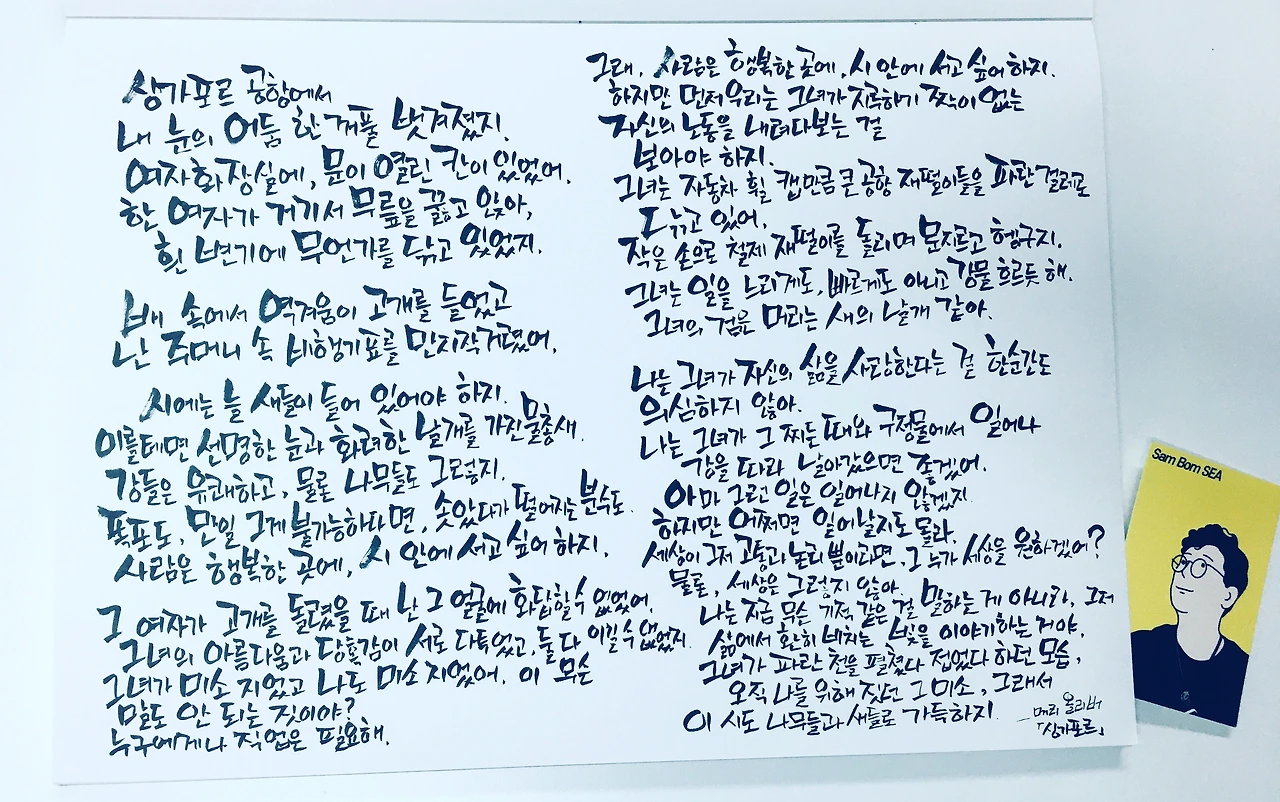 싱가포르 공항에서
내 눈의 어둠 한 꺼풀 벗겨졌지.
여자화장실에, 문이 열린 칸이 있었어.
한 여자가 거기서 무릎을 꿇고 앉아,
흰 변기에 무언가를 닦고 있었지.
배 속에서 역겨움이 고개를 들었고
난 주머니 속 비행기표를 만지작거렸어.
시에는 늘 새들이 들어 있어야 하지.
이를테면 선명한 눈과 화려한 날개를 가진 물총새.
강들은 유쾌하고, 물론 나무들도 그렇지.
폭포도, 만일 그게 불가능하다면, 솟았다가 떨어지는 분수도.
사람은 행복한 곳에, 시 안에 서고 싶어 하지.
그 여자가 고개를 돌렸을 때 난 그 얼굴에 화답할 수 없었어.
그녀의 아름다움과 당혹감이 서로 다투었고, 둘 다 이길 수 없었지.
그녀가 미소 지었고 나도 미소 지었어. 이 무슨
말도 안 되는 짓이야?
누구에게나 직업은 필요해.
그래, 사람은 행복한 곳에, 시 안에 서고 싶어 하지.
하지만 먼저 우리는 그녀가 지루하기 짝이 없는
자신의 노동을 내려다보는 걸
보아야 하지.
그녀는 자동차 휠 캡만큼 큰 공항 재떨이들을 파란 걸레로
닦고 있어.
작은 손으로 철제 재떨이를 돌리며 문지르고 헹구지.
그녀는 일을 느리게도, 빠르게도 아니고 강물 흐르듯 해.
그녀의 검은 머리는 새의 날개 같아.
나는 그녀가 자신의 삶을 사랑한다는 걸 한순간도
의심하지 않아.
나는 그녀가 그 찌든 때와 구정물에서 일어나
강을 따라 날아갔으면 좋겠어.
아마 그런 일은 일어나지 않겠지.
하지만 어쩌면 일어날지도 몰라.
세상이 그저 고통과 논리 뿐이라면, 그 누가 세상을 원하겠어?
물론, 세상은 그렇지 않아.
나는 지금 무슨 기적 같은 걸 말하는 게 아니라, 그저
삶에서 환히 비치는 빛을 이야기하는 거야.
그녀가 파란 천을 펼쳤다 접었다 하던 모습,
오직 나를 위해 짓던 그 미소, 그래서
이 시도 나무들과 새들로 가득하지.
- 메리 올리버
「싱가포르」
Sam Bom SEA